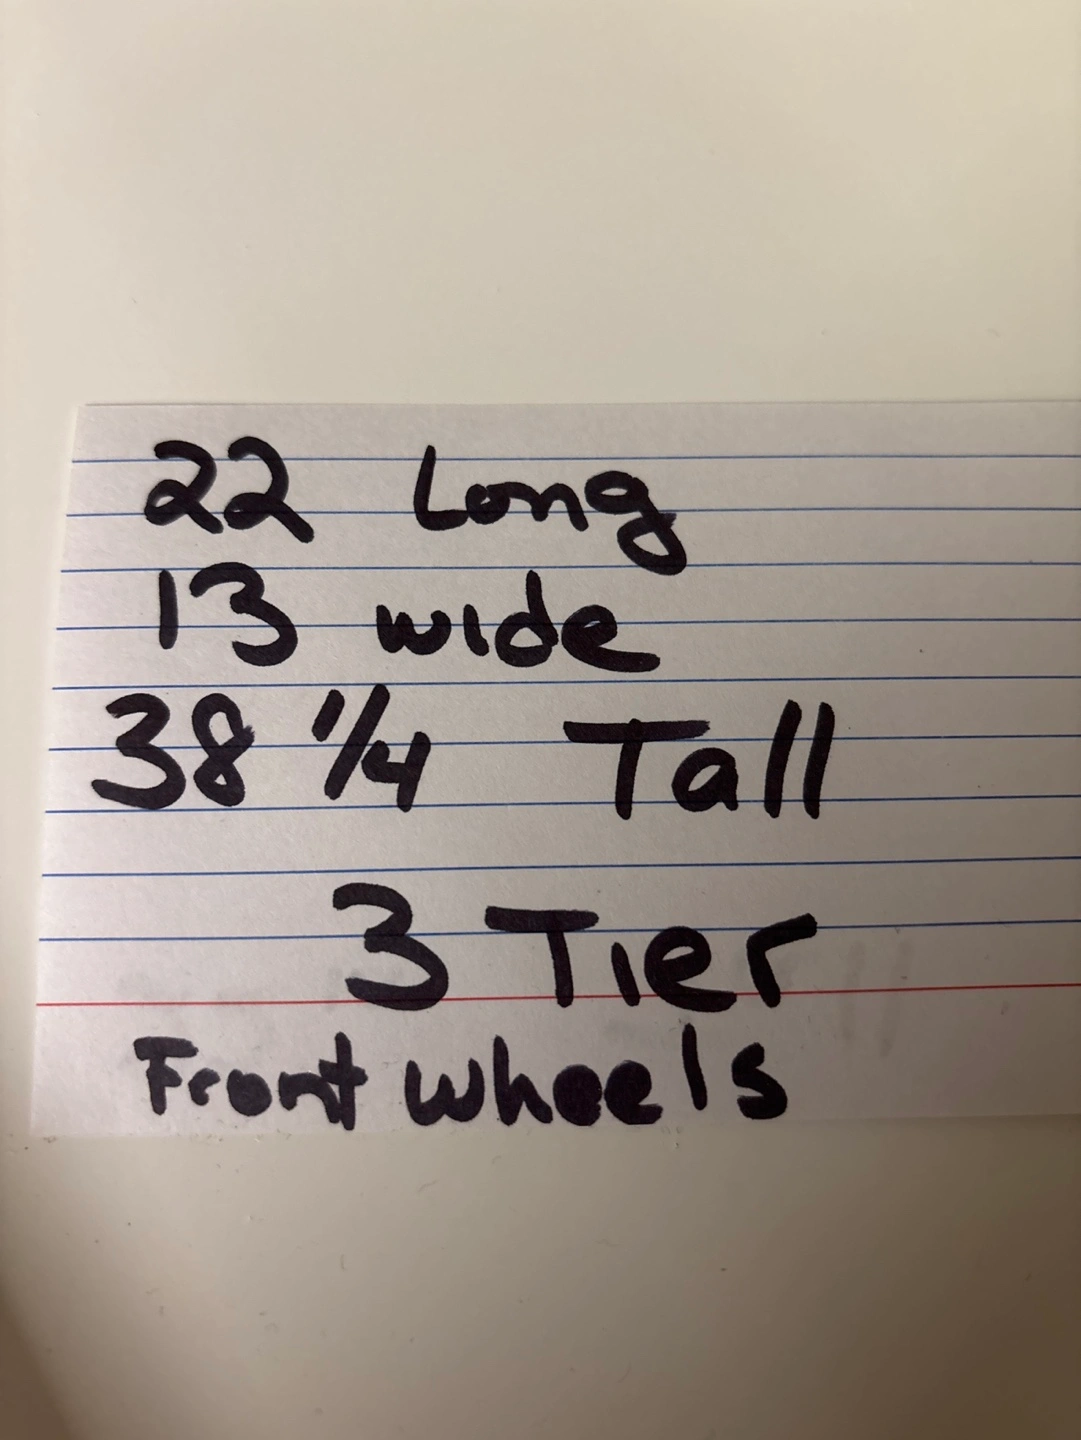 22 Long
13 wide
38 1/4 Tall
3 Tier
Front wheels